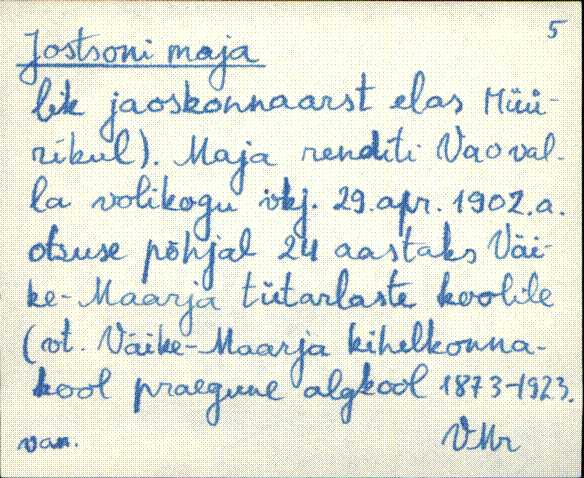 5
Jostsoni maja
lik jaoskonnaarst elas Müü-
rikul). Maja renditi Vao val-
la volikogu vkj. 29. apr. 1902. a.
otsuse põhjal 24 aastaks Väi-
ke-Maarja tütarlaste koolile
(vt. Väike-Maarja kihelkonna-
kool praegune algkool 1873-1923.
van. VMr